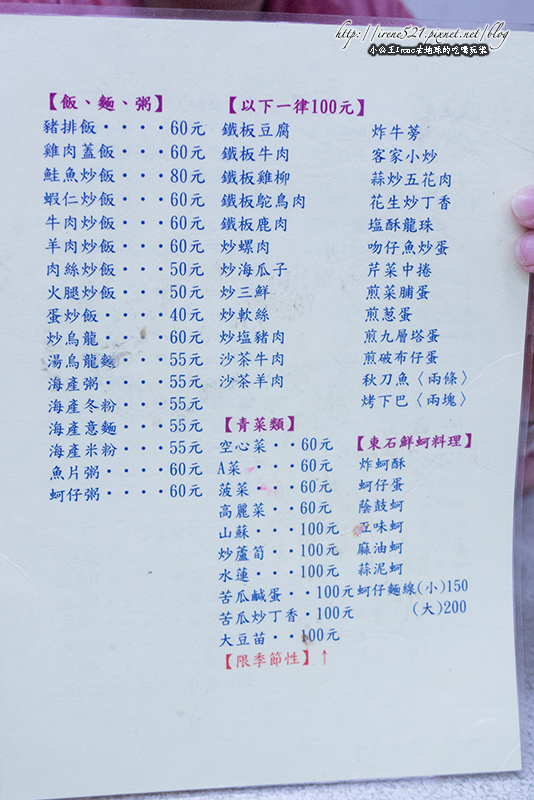 http://irene521.pixnet.net/blog
【飯、麵、粥】
豬排飯····60元
雞肉蓋飯···60元
鮭魚炒飯···80元
蝦仁炒飯···60元
牛肉炒飯···60元
羊肉炒飯···60元
肉絲炒飯···50元
火腿炒飯···50元
蛋炒飯····40元
炒烏龍····60元
湯烏龍麵···55元
海產粥····55元
海產冬粉···55元
海產意麵···55元
海產米粉···55元
魚片粥····60元
蚵仔粥····60元
【以下一律100元】
鐵板豆腐
鐵板牛肉
鐵板雞柳
鐵板鴕鳥肉
鐵板鹿肉
炒螺肉
炒海瓜子
炒三鮮
炒軟絲
炒塩豬肉
沙茶牛肉
沙茶羊肉
炸牛蒡
客家小炒
蒜炒五花肉
花生炒丁香
塩酥龍珠
吻仔魚炒蛋
芹菜中捲
煎菜脯蛋
煎蔥蛋
煎九層塔蛋
煎破布仔蛋
秋刀魚〈兩條〉
烤下巴〈兩塊〉
【青菜類】
空心菜··60元
A菜····60元
菠菜···60元
高麗菜··60元
山蘇···100元
炒蘆筍··100元
水蓮···100元
苦瓜鹹蛋··100元
苦瓜炒丁香·100元
大豆苗··100元
【限季節性】↑
【東石鮮蚵料理】
炸蚵酥
蚵仔蛋
蔭鼓蚵
五味蚵
麻油蚵
蒜泥蚵
蚵仔麵線(小)150
(大)200